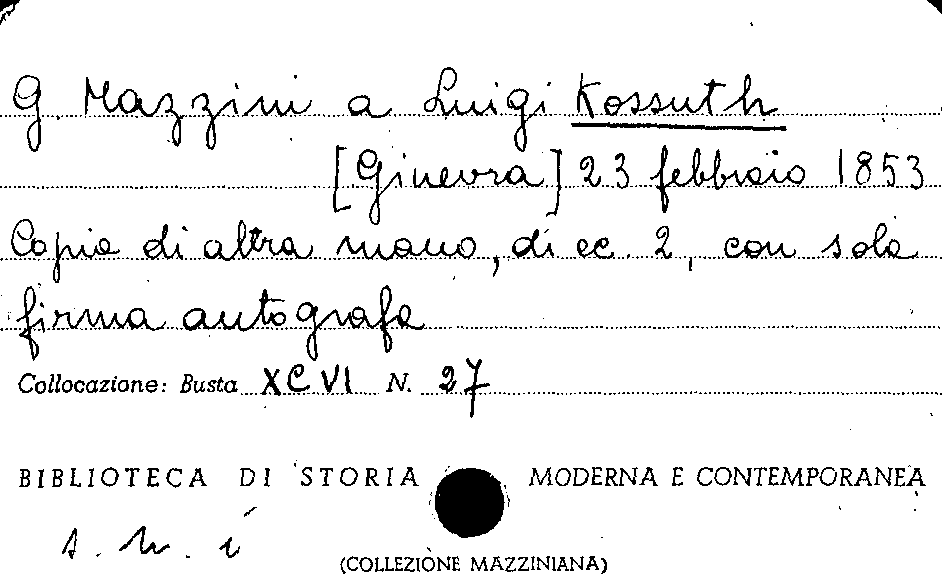 G. Mazzini a Luigi Kossuth
[Ginevra] 23 febbraio 1853
Copia di altra mano, di cc. 2, con sola
firma autografa
Collocazione: Busta XCVI N. 27
BIBLIOTECA DI STORIA MODERNA E CONTEMPORANEA
(COLLEZIONE MAZZINIANA)